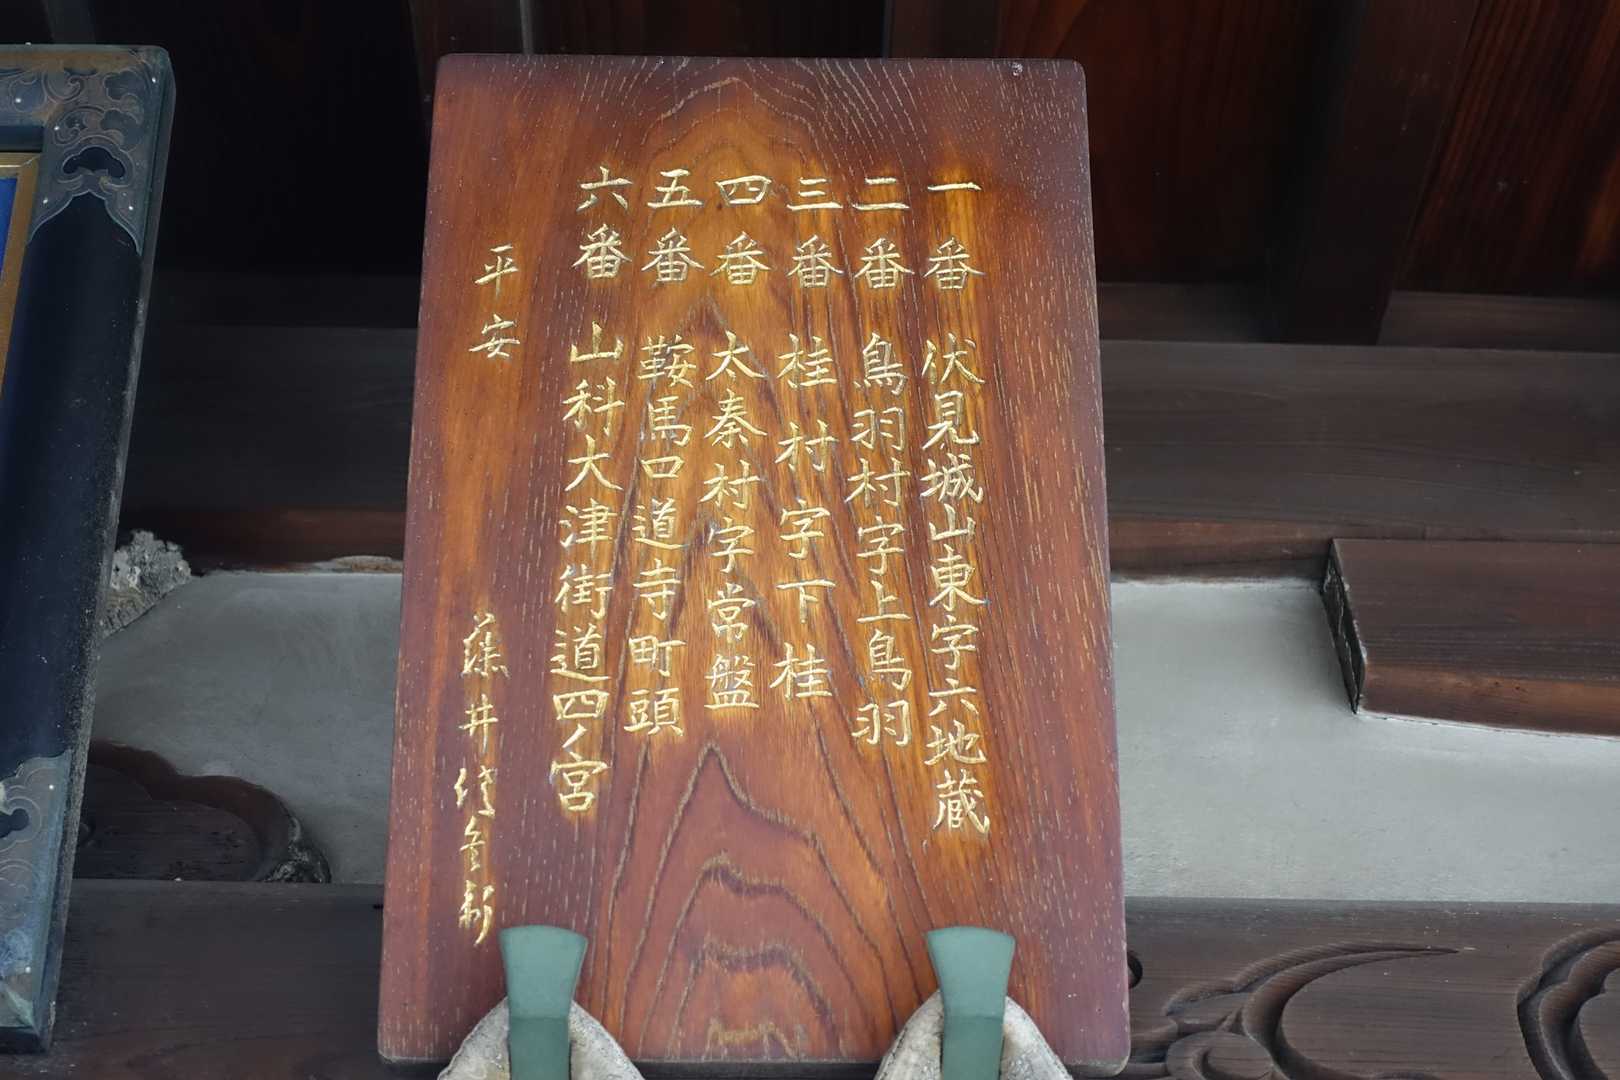 一番 伏見城山東字六地蔵
二番 鳥羽村字上鳥羽
三番 桂村字下桂
四番 太秦村字常盤
五番 鞍馬口道寺町頭
六番 山科大津街道四ノ宮
平安 藤井